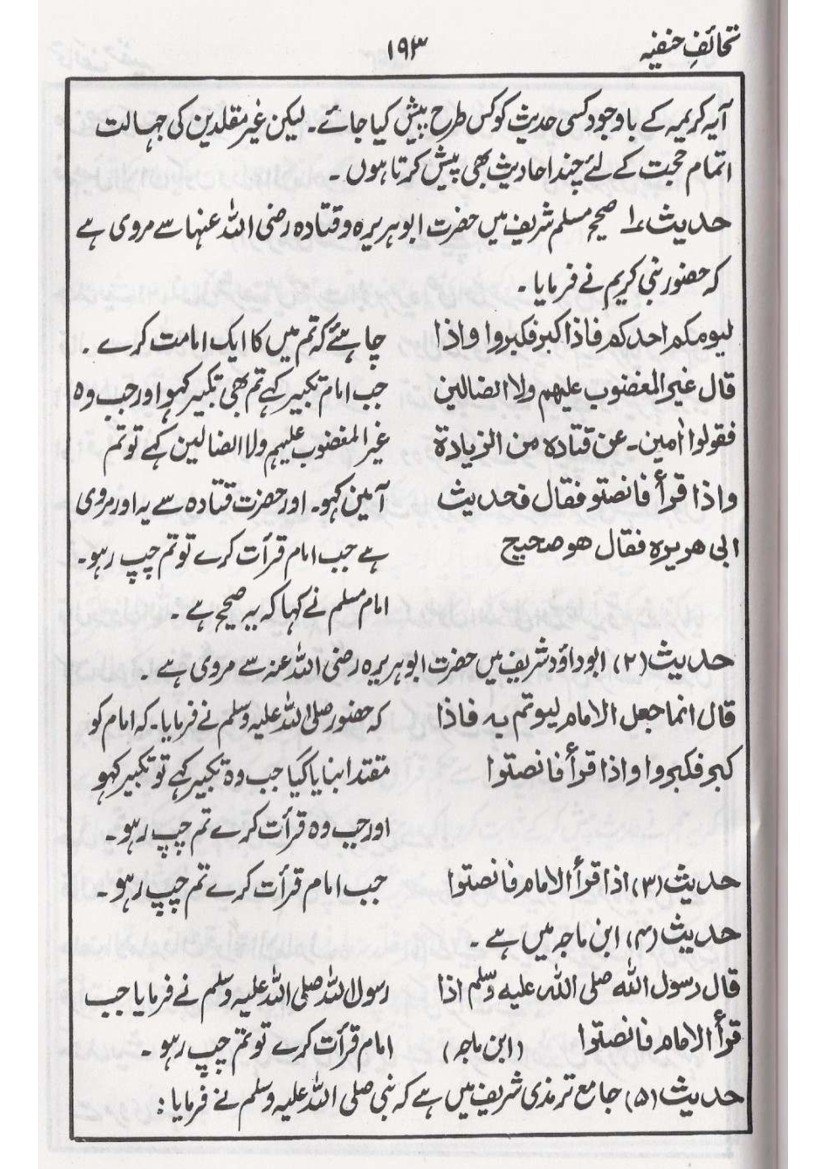 تحائفِ حنفیہ
۱۹۳
آیہ کریمہ کے باوجود کسی حدیث کو کس طرح پیش کیا جائے۔ لیکن غیر مقلدین کی جہالت
اتمام حجت کے لئے چند احادیث بھی پیش کرتا ہوں۔
حدیث ۱؎ صحیح مسلم شریف میں حضرت ابوہریرہ و قتادہ رضی اللہ عنہا سے مروی ہے
کہ حضور نبی کریم نے فرمایا۔
لیومکم احدکم فاذا کبر فکبروا واذا
قال غیر المغضوب علیہم ولا الضالین
فقولوا اٰمین۔ عن قتادہ من الزیادۃ
واذا قرأ فانصتو فقال فحدیث
ابی ھریرہ فقال ھو صحیح
چاہئے کہ تم میں کا ایک امامت کرے۔
جب امام تکبیر کہے تم بھی تکبیر کہو اور جب وہ
غیر المغضوب علیہم ولا الضالین کہے تو تم
آمین کہو۔ اور حضرت قتادہ سے یہ اور مروی
ہے جب امام قرأت کرے تو تم چپ رہو۔
امام مسلم نے کہا کہ یہ صحیح ہے۔
حدیث (۲) ابوداؤد شریف میں حضرت ابوہریرہ رضی اللہ عنہ سے مروی ہے۔
قال انما جعل الامام لیوتم بہ فاذا
کبر فکبروا واذا قرأ فانصتوا
کہ حضور صلی اللہ علیہ وسلم نے فرمایا۔ کہ امام کو
مقتدا بنایا گیا جب وہ تکبیر کہے تو تکبیر کہو
اور جب وہ قرأت کرے تم چپ رہو۔
حدیث (۳) اذا قرأ الامام فانصتوا
جب امام قرأت کرے تم چپ رہو۔
حدیث (۴) ابن ماجہ میں ہے۔
قال رسول اللہ صلی اللہ علیہ وسلم اذا
قرأ الامام فانصتوا (ابن ماجہ)
رسول اللہ صلی اللہ علیہ وسلم نے فرمایا جب
امام قرأت کرے تو تم چپ رہو۔
حدیث (۵) جامع ترمذی شریف میں ہے کہ نبی صلی اللہ علیہ وسلم نے فرمایا :